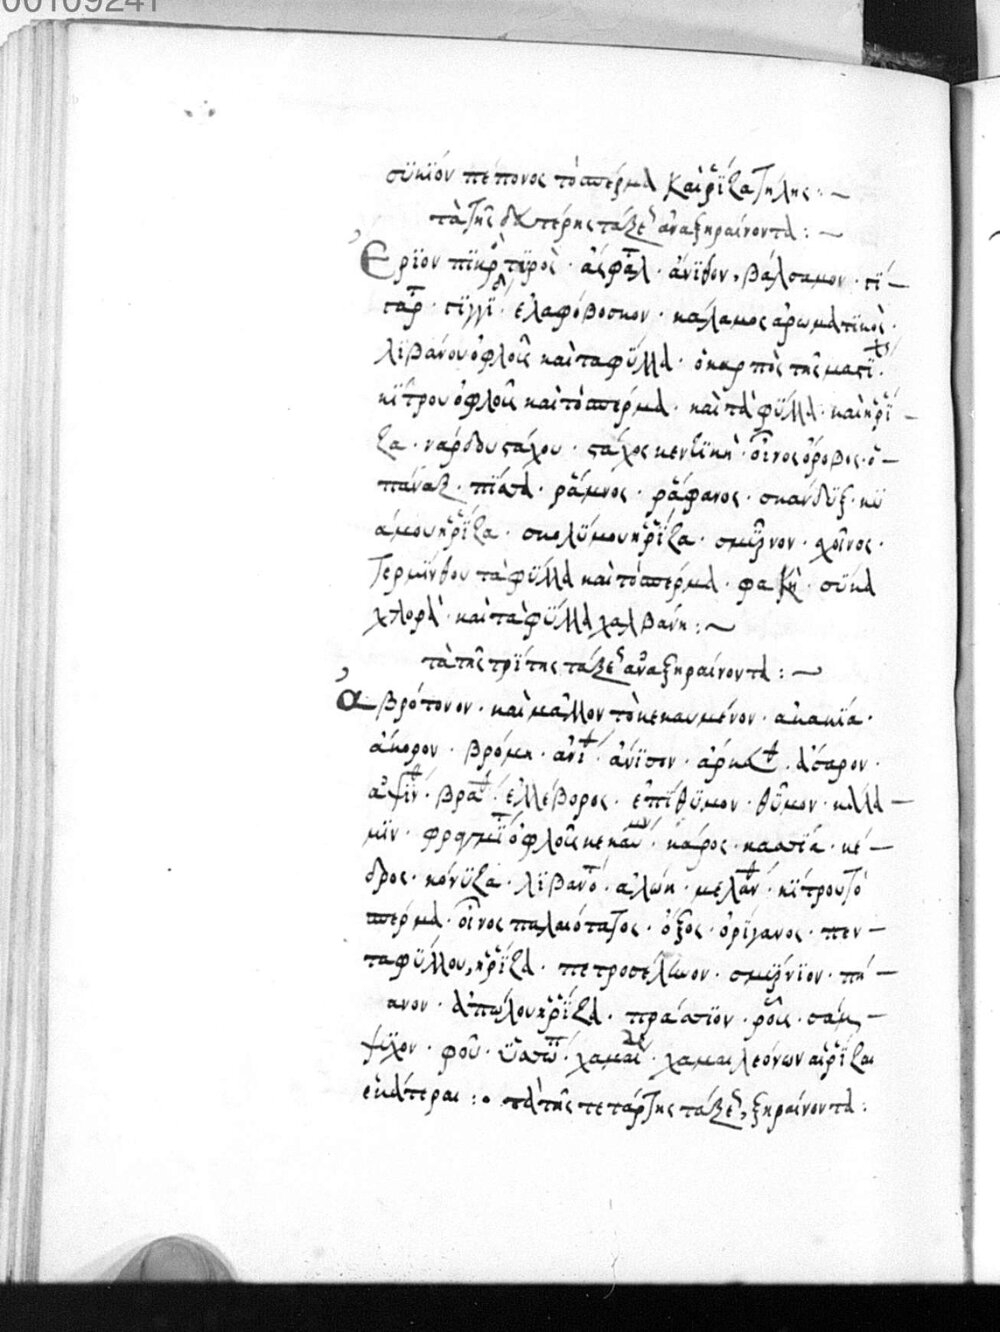 00109241
σϊκϊόν πέπονος τὸ σπέρμα καὶ ῥΐζα τήλης :~
τὰ τῆς δευτέρης τάξε ἀναξηραίνοντα :~
Ἐρϊον πϊκρ τϊρος · ἀσφαλ · ἄνϊθον, βάλσαμον · γϊ
γαρ · γϊγγϊ · ἐλαφόβοσκον · κάλαμος ἀρωματϊκὸς ·
λϊβάνου ὁ φλοιὸς καὶ τὰ φϋλλα · ὁ καρπὸς τῆς μαστϊ ·
κϊτρου ὁ φλοιὸς καὶ τὸ σπέρμα · καὶ τὰ φϋλλα · καὶ ἡ ῥϊ
ζα · νάρδου στάχου · στάχος κεντϊκὴ · οἶνος ὄροβος · ὁ
πάναξ · πϊσσα · ῥάμνος · ῥάφανος · σκάνδϋξ · κϋ
άμου ἡ ῥΐζα · σκολϋμου ἡ ῥΐζα · σμϋρνον · σχοῖνος ·
τερμϊνθου τὰ φϋλλα καὶ τὸ σπέρμα · φακῆ · σϋκα
χλορὰ · καὶ τὰ φϋλλα χαλβάνη :~
τὰ τῆς τρϊτης τάξε ἀναξηραίνοντα :~
ἀβρότονον · καὶ μᾶλλον τὸ κεκαυμένον · ἀκακϊα ·
ἄκορον · βρόμη · ἀνϊ · ἄνϊσον · ἀρκ · ἄσαρον ·
ἀψϊν · βρα · ἐλλέβορος · ἐπϊθϋμον · θϋμον · καλα
μϊν · φραγμϊ ὁ φλοιὸς κεκαυμ · κάρος · κασσϊα · κέ
δρος · κόνϋζα · λϊβανο · ἀλώη · μελαν · κϊτρου τὸ
σπέρμα · οἶνος παλαιότατος · ὄξος · ὀρϊγανος · πεν
ταφϋλλου, ἡ ῥΐζα · πετροσέλινον · σμϋρνϊον · πή
ανον · ἀπώλου ἡ ῥΐζα · πράσσϊον · ῥοῦς · σαμ
ψϊχον · φοῦ · ϋσσω · χαμαι · χαμαιλεόνων αἱ ῥΐζαι
ἑκάτεραι :· τὰ τῆς τετάρτης τάξε, ξηραίνοντα :